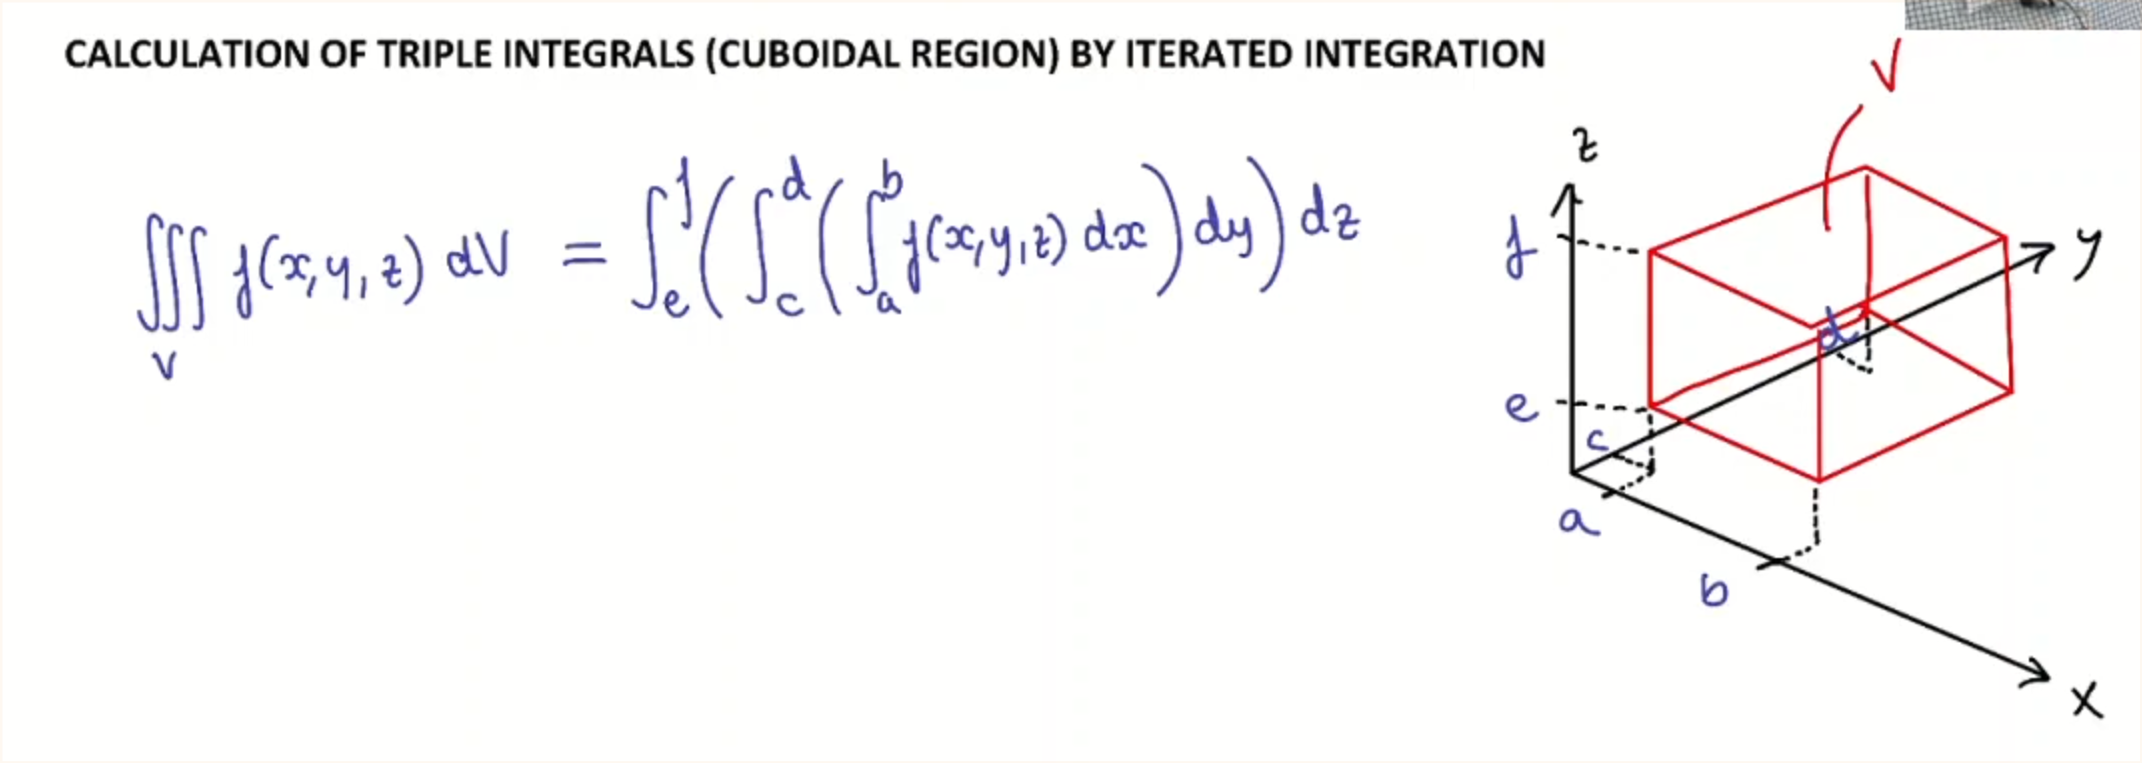 CALCULATION OF TRIPLE INTEGRALS (CUBOIDAL REGION) BY ITERATED INTEGRATION
∭_V f(x,y,z) dV = ∫_e^f (∫_c^d (∫_a^b f(x,y,z) dx) dy) dz
V
z
f
y
d
e
c
a
b
x